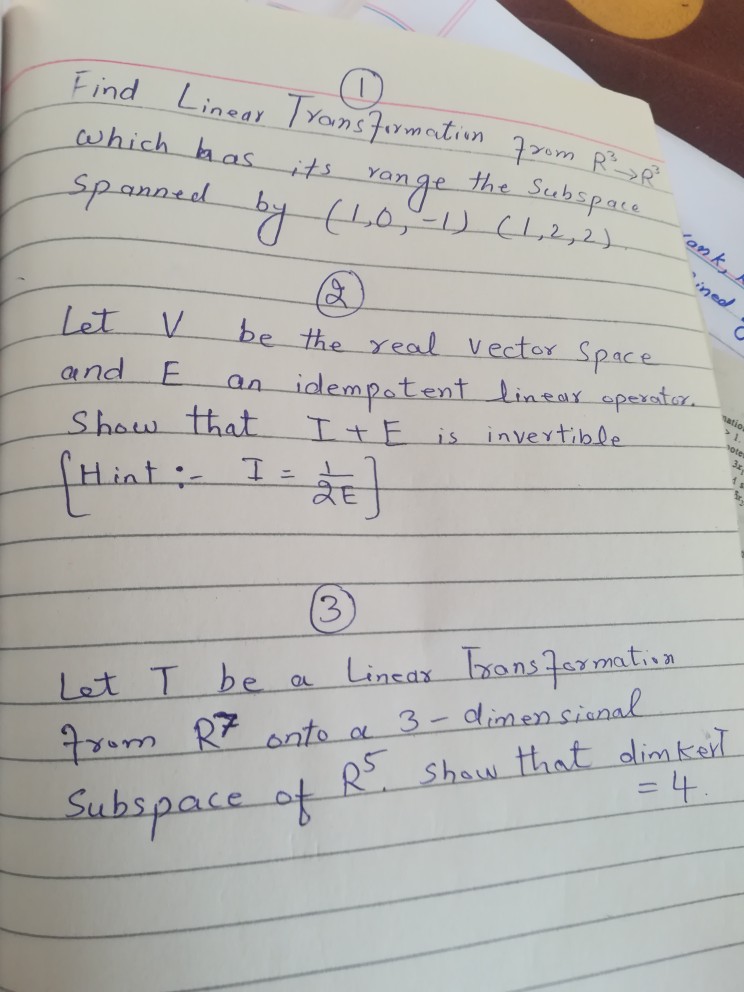 1
Find Linear Transformation from R³→R³
which has its range the subspace
spanned by (1,0,-1) (1,2,2)
2
Let V be the real vector space
and E an idempotent linear operator.
Show that I + E is invertible
[Hint :- I = 1/2E]
3
Let T be a Linear Transformation
from R⁷ onto a 3-dimensional
Subspace of R⁵. Show that dimkerT
= 4.
ank,
ined